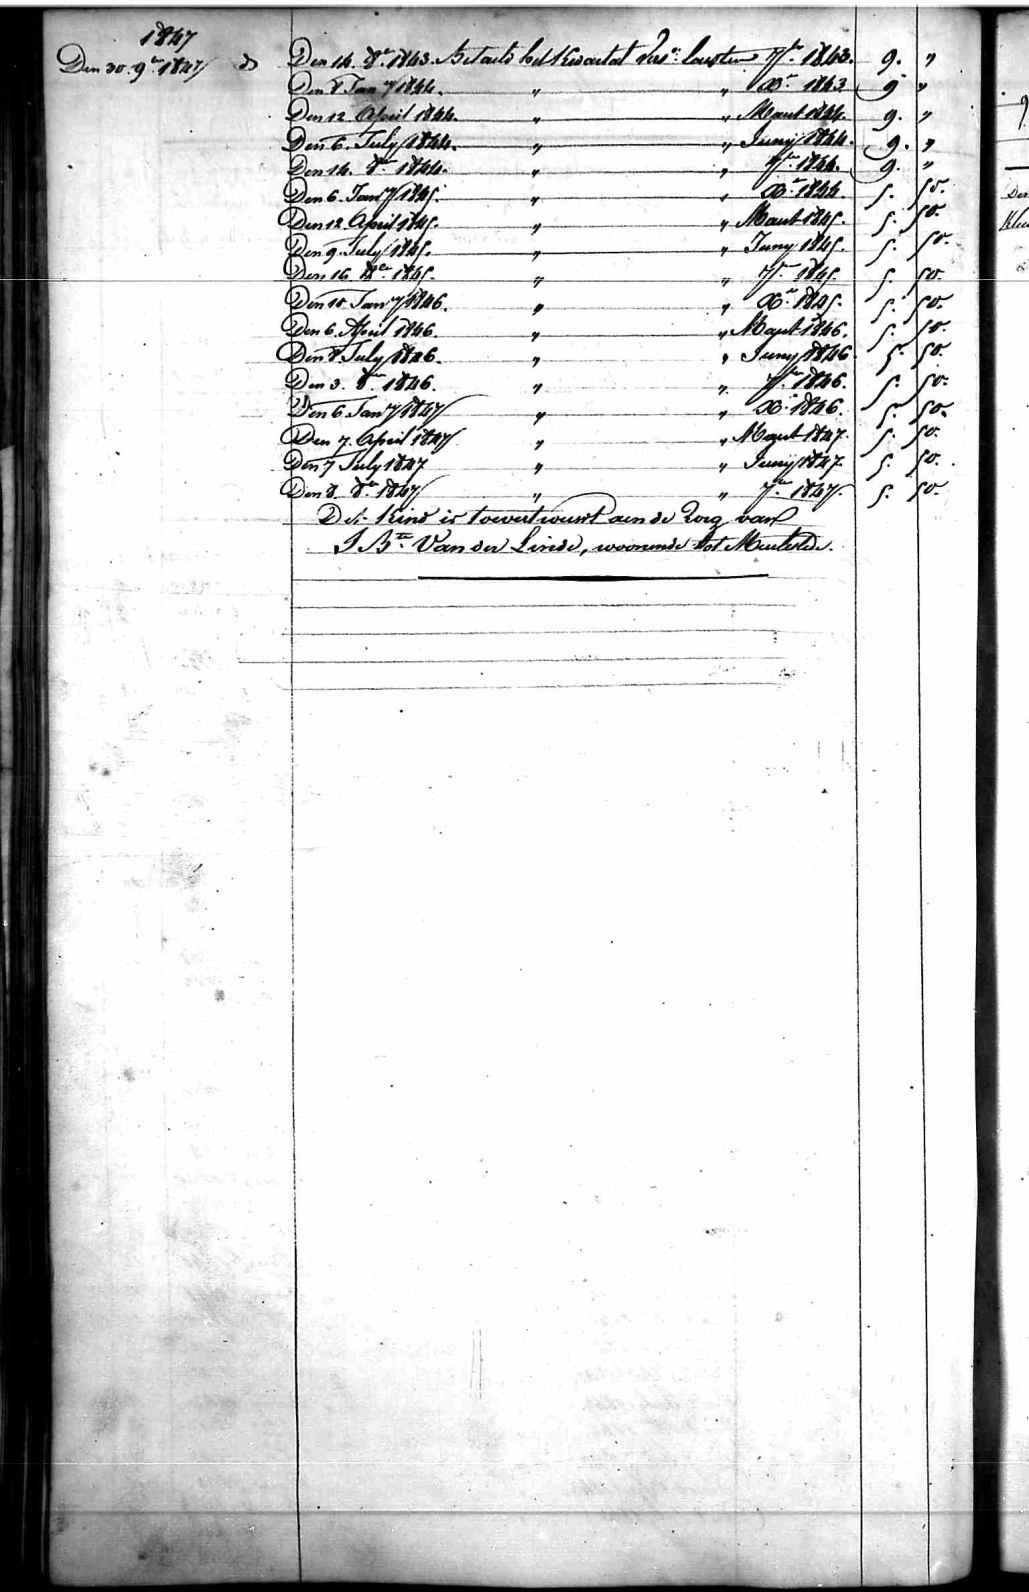 1847
Den 30. 9re 1847 Den 14. 8re 1843. Betaeld het Kwartat vers: laesten 7re 1843. 9. "
Den 8 Jany 1844. " " Xre 1843 9 "
Den 12 April 1844. " " Maert 1844. 9. "
Den 6. July 1844. " " Juny 1844. 9. "
Den 14. 8re 1844. " " 7re 1844. 9. "
Den 6. Jany 1845. " " Xre 1844. 5. 50.
Den 12 April 1845. " " Maert 1845. 5. 50.
Den 9. July 1845. " " Juny 1845. 5. 50.
Den 16. 8re 1845. " " 7re 1845. 5. 50.
Den 10 Jany 1846. " " Xre 1845. 5. 50.
Den 6. April 1846. " " Maert 1846. 5. 50.
Den 8. July 1846. " " Juny 1846 5. 50.
Den 3. 8re 1846. " " 7re 1846. 5. 50.
Den 6 Jany 1847 " " Xre 1846. 5. 50.
Den 7. April 1847 " " Maert 1847. 5. 50.
Den 7 July 1847 " " Juny 1847. 5. 50.
Den 8. 8re 1847 " " 7re 1847. 5. 50.
Dit Kind is toevertrouwt aen de Zorg van
J Bte Van der Linde, woonende tot Meulestede.